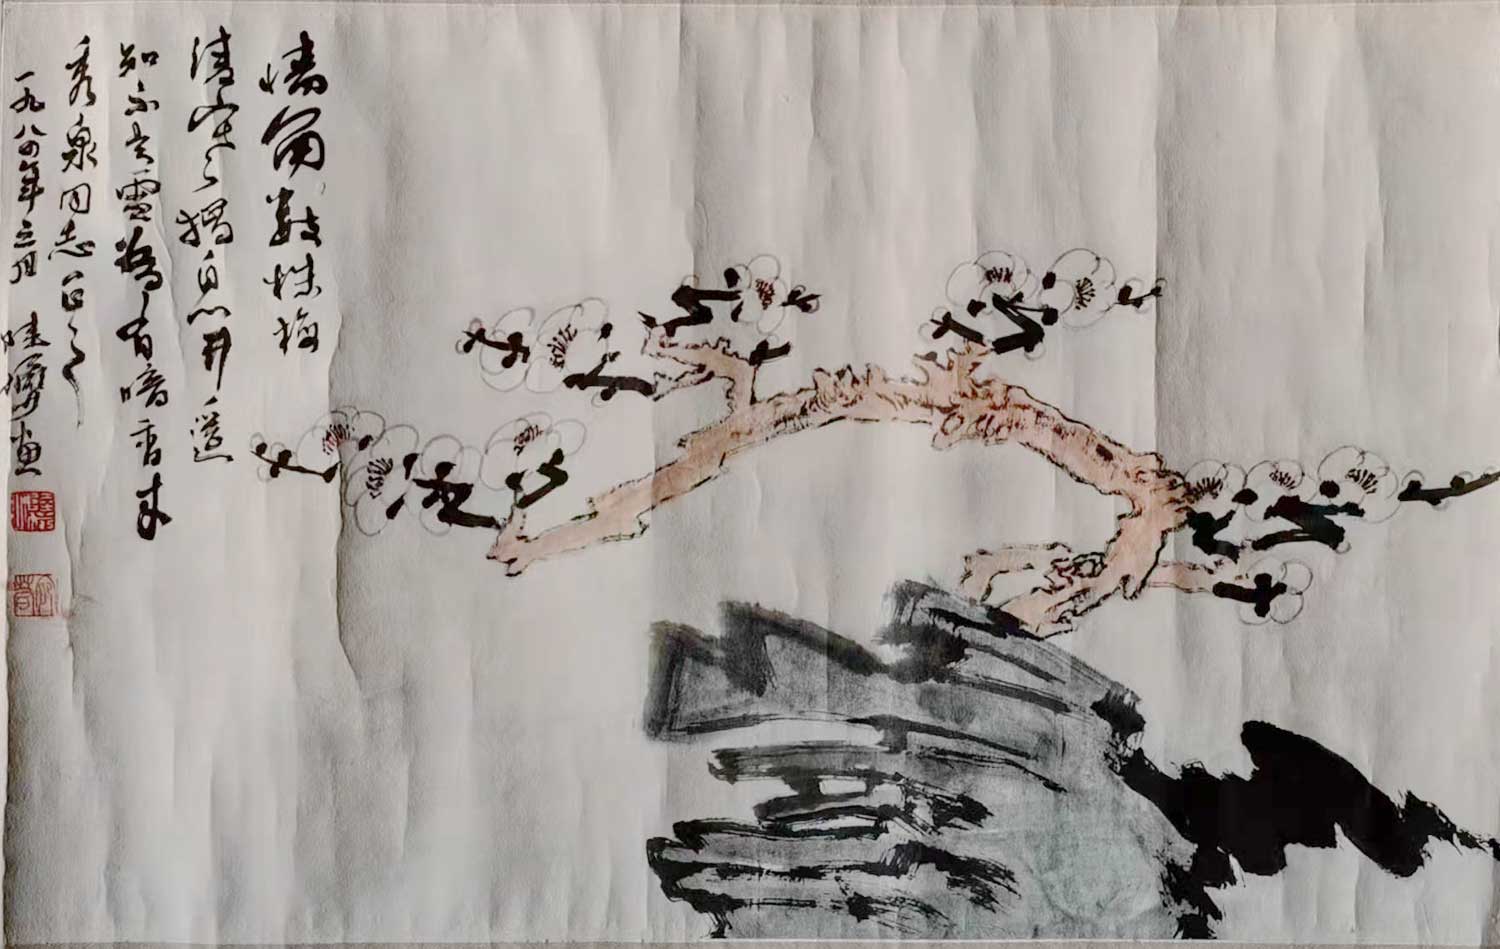 墙角數株梅
凌寒獨自开遥
知不是雪為有暗香来
秀泉同志正之
一九八四年三月 画